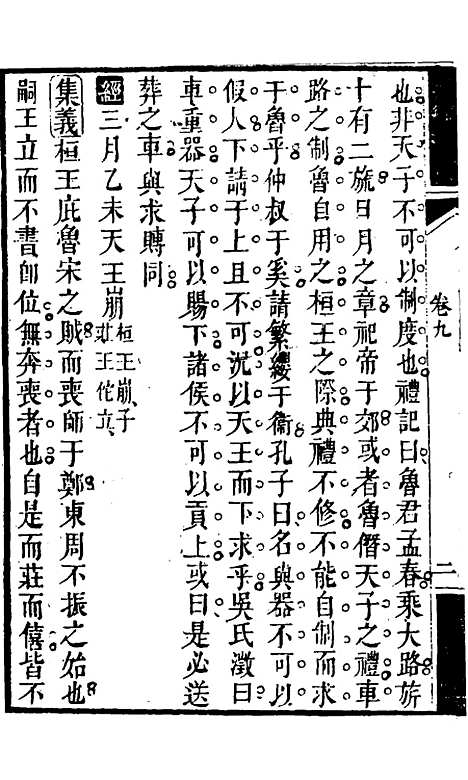 卷九
二
也非天子不可以制度也禮記曰魯君孟春乘大路旂
十有二旒日月之章祀帝于郊或者魯僭天子之禮車
路之制魯自用之桓王之際典禮不修不能自制而求
于魯乎仲叔于奚請繁纓于衞孔子曰名與器不可以
假人下請于上且不可況以天王而下求乎吳氏澂曰
車重器天子可以賜下諸侯不可以貢上或曰是必送
葬之車與求賻同
經三月乙未天王崩桓王崩子莊王佗立
集義桓王庇魯宋之賊而喪師于鄭東周不振之始也
嗣王立而不書卽位無奔喪者也自是而莊而僖皆不